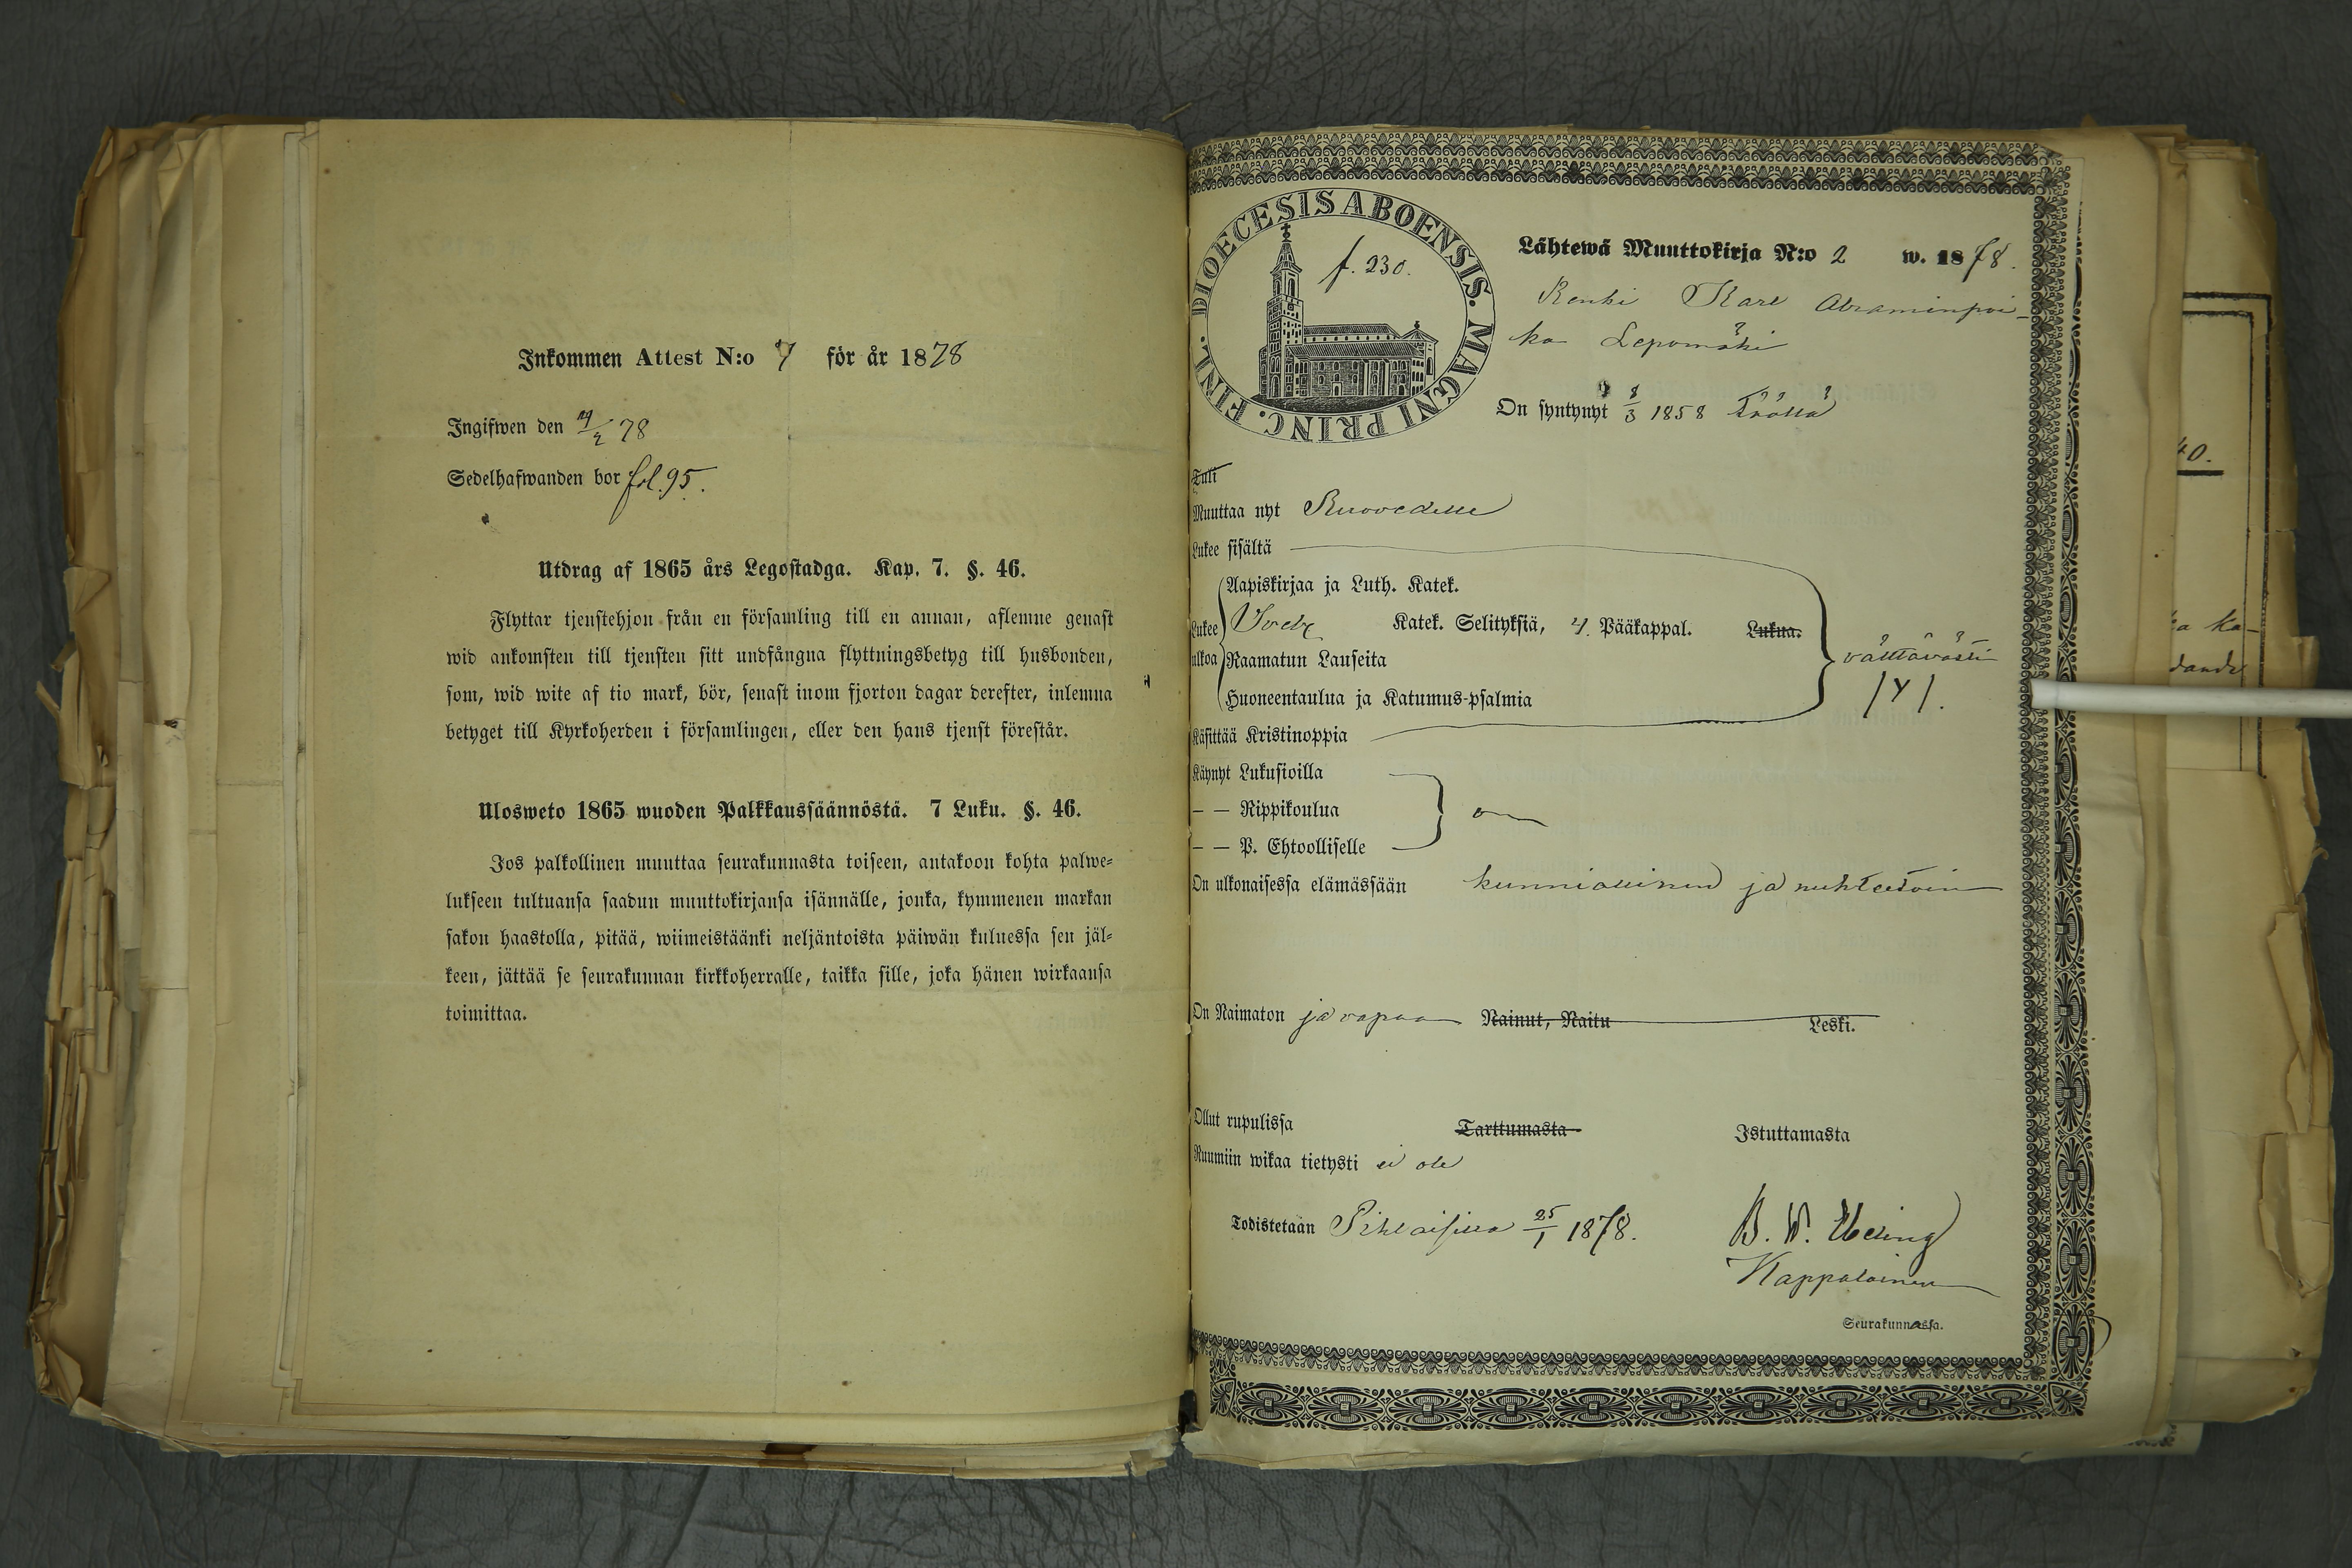 Inkommen Attest N:o 7 för år 1878
Ingifwen den 78
Sedelhafwanden bor fol. 95.
Utdrag af 1865 års Legostadga. Kap. 7. §. 46.
Flyttar tjenstehjon från en församling till en annan, aflemne genast
wid ankomsten till tjensten sitt undfångna flyttningsbetyg till husbonden,
som, wid wite af tio mark, bör, senast inom fjorton dagar derefter, inlemna
betyget till Kyrkoherden i församlingen, eller den hans tjenst förestår.
Ulosweto 1865 wuoden Palkkaussäännöstä. 7 Luku. §. 46.
Jos palkollinen muuttaa seurakunnasta toiseen, antakoon kohta palwe-
lukseen tultuansa saadun muuttokirjansa isännälle, jonka, kymmenen markan
sakon haastolla, pitää, wiimeistäänki neljäntoista päiwän kuluessa sen jäl-
keen, jättää se seurakunnan kirkkoherralle, taikka sille, joka hänen wirkaansa
toimittaa.
DIOECESIS ABOENSIS. MAGNI PRINC. FINL.
f. 230.
Lähtewä Muuttokirja N:o 2 w. 1878.
Renki Karl Abraminpoi-
ka Lepomäki
On syntynyt 8/3 1858 Täällä
Tuli
Muuttaa nyt Ruovedelle
Lukee sisältä
Lukee ulkoa
Aapiskirjaa ja Luth. Katek.
Katek. Selityksiä, 4. Pääkappal. Lukua.
Raamatun Lauseita
Huoneentaulua ja Katumus-psalmia
välttävästi
Käsittää Kristinoppia
Käynyt Lukusioilla
— — Rippikoulua
on
— — P. Ehtoolliselle
On ulkonaisessa elämässään kunniallinen ja nuhteetoin
On Naimaton ja vapaa Nainut, Naitu Leski.
Ollut rupulissa Tarttumasta Istuttamasta
Ruumiin wikaa tietysti ei ole
Todistetaan Pihlaisissa 25/1 1878.
B. W.
Kappalainen
Seurakunnassa.
40.